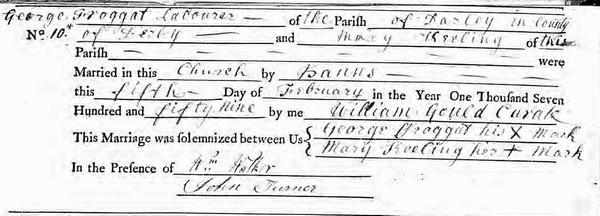 George Froggat Labourer — of the Parish of Darley in County
No. 10. of Derby — and Mary Keeling of this
Parish — were
Married in this Church by Banns —
this fifth Day of February in the Year One Thousand Seven
Hundred and fifty Nine by me William Gould Curate
This Marriage was solemnized between Us { George Froggat his X Mark
Mary Keeling her + Mark
In the Presence of Wm
John Turner